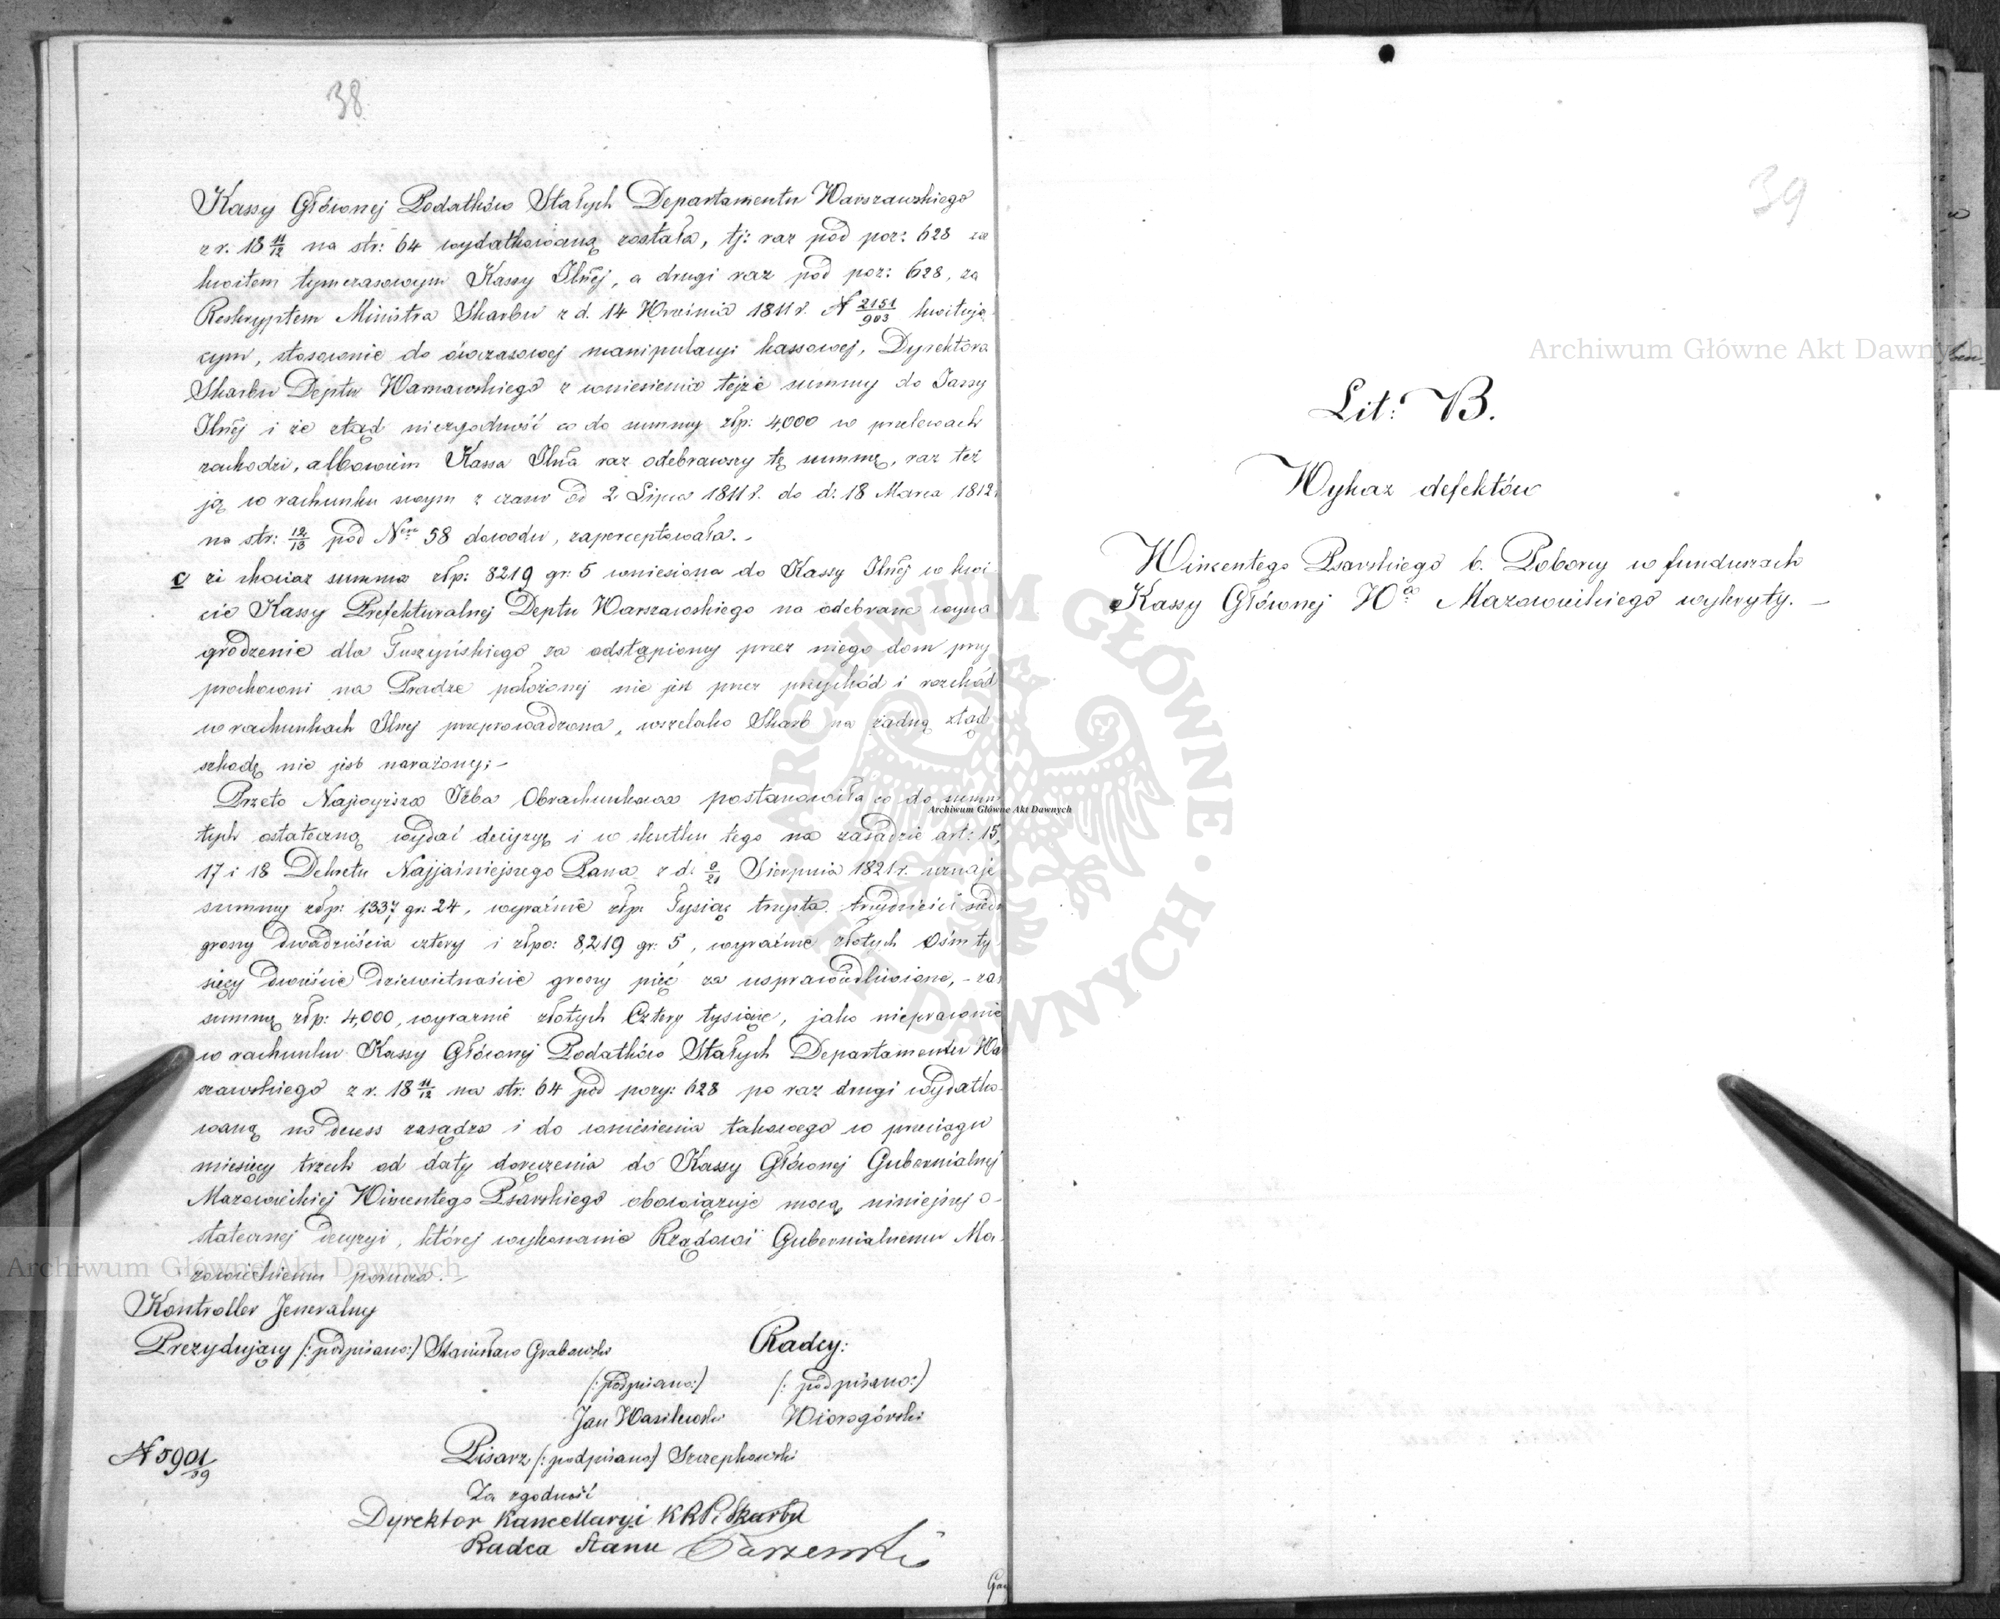 38
Kassy Głównej Podatków Stałych Departamentu Warszawskiego
z r. 18 11/12 na str: 64 wydatkowaną została, tj: raz pod poz: 628 za
kwitem tymczasowym Kassy Głnéj, a drugi raz pod poz: 628, za
Reskryptem Ministra Skarbu z d. 14 Września 1811 r. N 2151/903 kwitują
cym, stosownie do ówczasowej manipulacyi kassowej, Dyrektora
Skarbu Deptu Warszawskiego z wniesienia tejże summy do Kassy
Głnéj i że ztąd niezgodność co do summy złp: 4000 w przelewach
zachodzi, albowiem Kassa Głna raz odebrawszy tę summę, raz też
ją w rachunku swym z czasu od 2 Lipca 1811 r. do d: 18 Marca 1812
na str: 12/13 pod Nrem 58 dowodu, zaperceptowała. –
c że chociaż summa złp: 8219 gr: 5 wniesiona do Kassy Głnéj w kwi
cie Kassy Prefekturalnej Deptu Warszawskiego na odebrane wyna
grodzenie dla Tuszyńskiego za odstąpiony przez niego dom przy
prochowni na Pradze położonej nie jest przez przychód i rozchód
w rachunkach Głnej przeprowadzona, wszelako Skarb na żadną ztąd
szkodę nie jest narażony; –
Przeto Najwyższa Izba Obrachunkowa postanowiła co do summ
tych ostateczną wydać decyzyę i w skutku tego na zasadzie art: 15,
17 i 18 Dekretu Najjaśniejszego Pana z d. 9/21 Sierpnia 1821 r. uznaje
summy złp: 1,337 gr: 24, wyraźnie złp: Tysiąc trzysta trzydzieści siedm
groszy dwadzieścia cztery i złpo: 8,219 gr: 5, wyraźnie złotych Ośm ty
sięcy dwieście dziewiętnaście groszy pięć za usprawiedliwione, – za
summę złp: 4,000, wyraźnie złotych Cztery tysiące, jako nieprawnie
w rachunku Kassy Głównej Podatków Stałych Departamentu War
szawskiego z r. 18 11/12 na str: 64 pod pozy: 628 po raz drugi wydatko-
waną na decess zasądza i do wniesienia takowego w przeciągu
miesięcy trzech od daty doręczenia do Kassy Głównej Gubernialnej
Mazowieckiej Wincentego Psarskiego obowiązuje mocą niniejszej o-
statecznej decyzyi, której wykonanie Rządowi Gubernialnemu Ma-
zowieckiemu porucza. –
Kontroller Jeneralny
Prezydujący /: podpisano:/ Stanisław Grabowski
Radcy:
/: podpisano:/ /: podpisano:/
Jan Wasilewski Wiorogórski
N 5901/39
Pisarz /: podpisano/ Szczepkowski
Za zgodność
Dyrektor Kancellaryi K R P i Skarbu
Radca Stanu
39
Lit: B.
Wykaz defektów
Wincentego Psarskiego b. Poborcy w funduszach
Kassy Głównej Wa Mazowieckiego wykryty. –
Archiwum Główne Akt Dawnych
Archiwum Główne Akt Dawnych
Archiwum Główne Akt Dawnych
ARCHIWUM GŁÓWNE AKT DAWNYCH